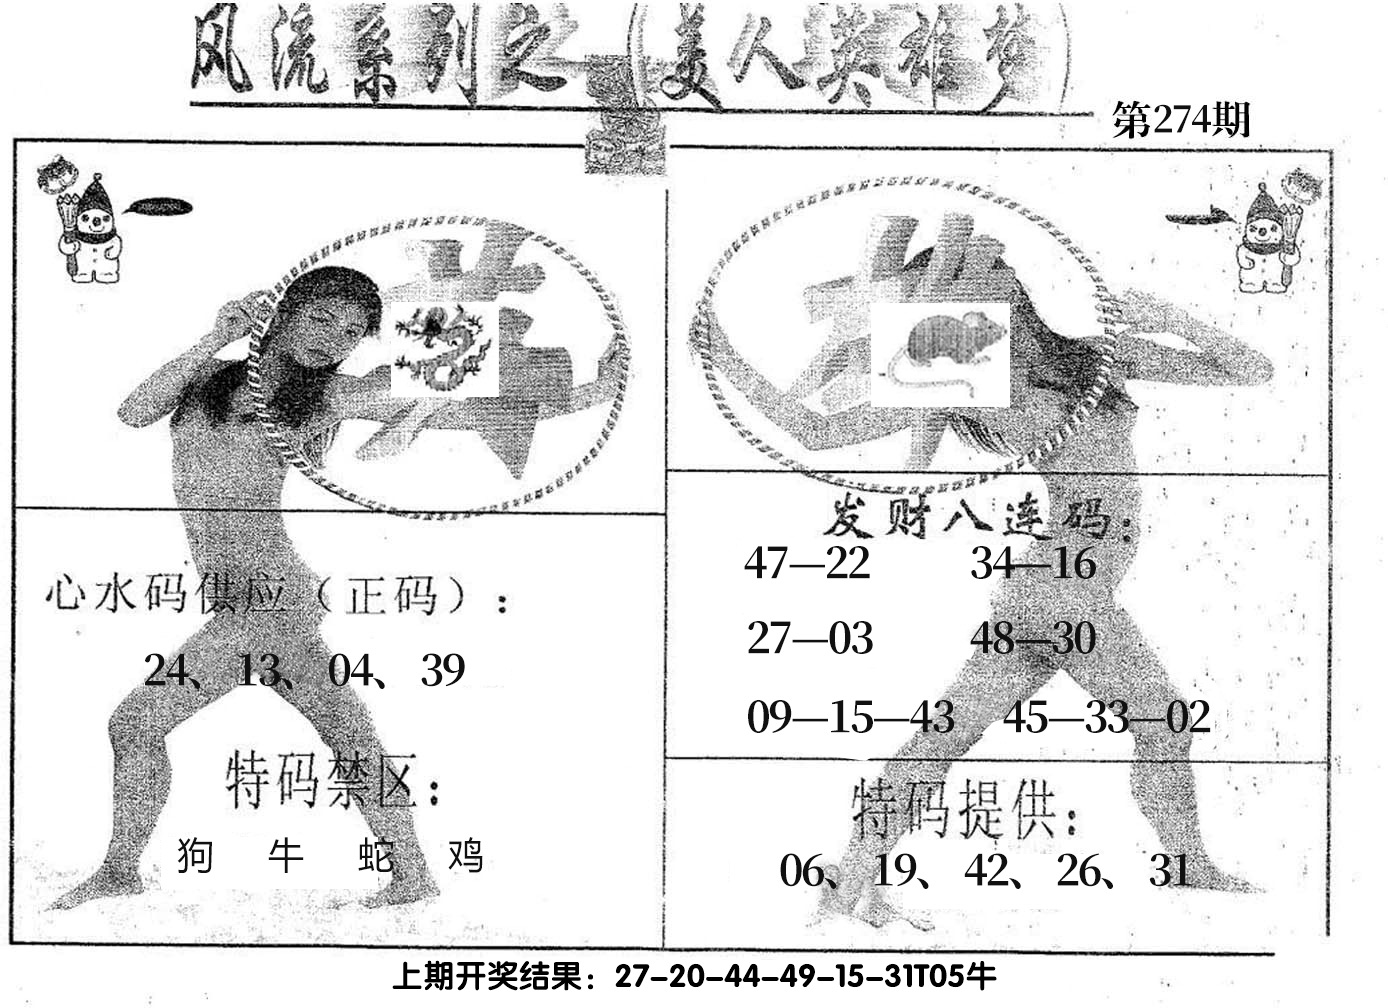 风流系列之（美人英雄梦
第274期
心水码供应（正码）：
24、13、04、39
特码禁区：
狗 牛 蛇 鸡
发财八连码：
47—22 34—16
27—03 48—30
09—15—43 45—33—02
特码提供：
06、19、42、26、31
上期开奖结果：27-20-44-49-15-31T05牛